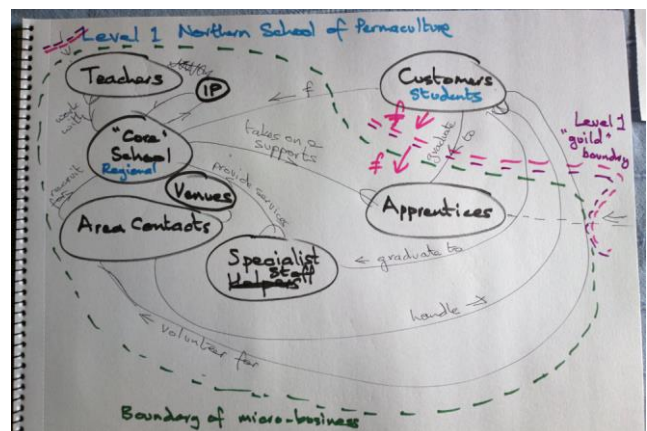 Level 1 Northern School of Permaculture
Teachers
IP
Customers
Students
f
work
with
"Core"
School
Regional
takes on &
supports
f
f
graduate to
Level 1
"guild"
boundry
recruit
for
Venues
provide services
Apprentices
Area Contacts
Specialist
Staff
Helpers
graduate to
handle
volunteer for
Boundary of micro-business